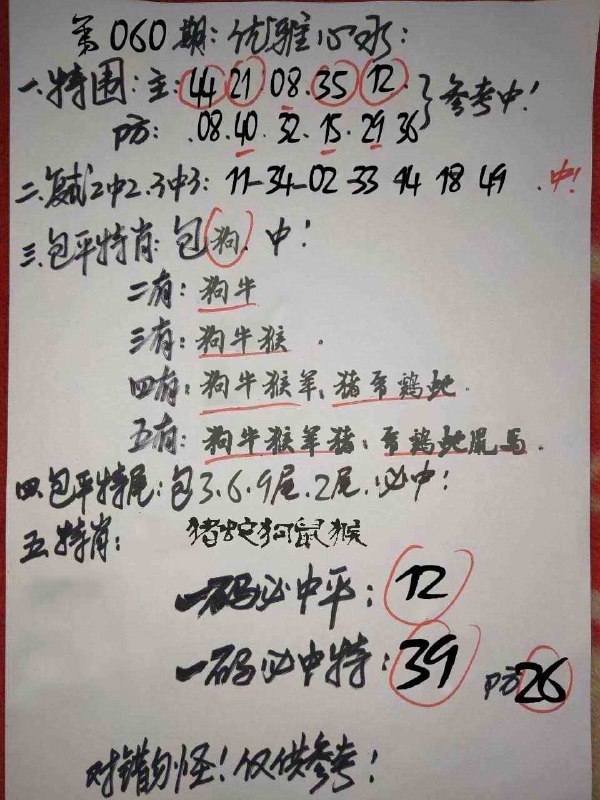 第060期:优雅心水:
一.特围:主:44 21 08.35 12 }参考中!
P方: .08.40.32.15.29 36
二.复式2中2.3中3: 11-34-02-33 14 18 49 .中!
三.包平特肖:包狗.中!
二有:狗牛
三有:狗牛猴.
四有:狗牛猴羊,猪兔鸡蛇.
五有:狗牛猴羊猪:兔鸡蛇鼠马.
四.包平特尾:包3.6.9尾.2尾.必中!
五.特肖: 猪蛇狗鼠猴
一码必中平:12
一码必中特:39 P方26
对错勿怪!仅供参考!